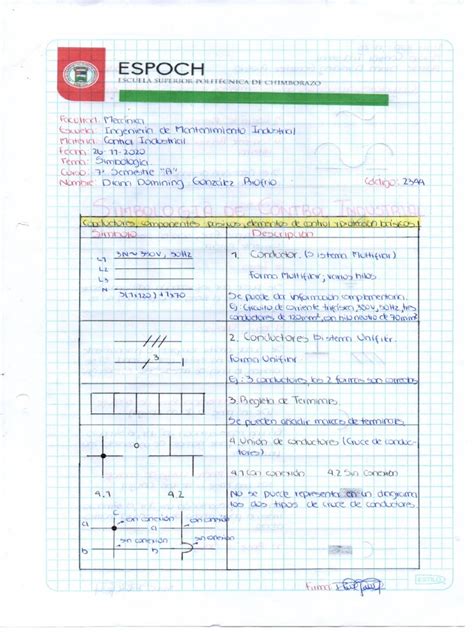 ESPOCH
ESCUELA SUPERIOR POLITÉCNICA DE CHIMBORAZO
Facultad: Mecánica
Escuela: Ingeniería de Mantenimiento Industrial
Materia: Control Industrial
Fecha: 26-11-2020
Tema: Simbología
Curso: 7º Semestre "A"
Nombre: Diann Domining González Riofrio Código: 2344
SIMBOLOGÍA DE CONTROL INDUSTRIAL
Conductores, componentes pasivos, elementos de control y protección básicos
Símbolo Descripción
L1 3N~380V, 50Hz
L2
L3
N 3(1x120)+1x70
1. Conductor. (Sistema Multifilar)
Forma Multifilar, varios hilos
Se puede dar información complementaria.
Ej: Circuito de corriente trifásica, 380V, 50Hz, tres
conductores de 120mm², con hilo neutro de 70mm²
3
2. Conductores Sistema Unifilar.
Forma Unifilar
Ej: 3 conductores, las 2 formas son correctas
3. Regleta de Terminales
Se pueden añadir marcas de terminales
o
4.1 4.2
4. Unión de conductores (Cruce de conduc-
tores)
4.1 Con conexión 4.2 Sin conexión
No se puede representar en un diagrama
los dos tipos de cruce de conductores
c
a con conexión a con conexión
b sin conexión b sin conexión
Firma:
ESTILO